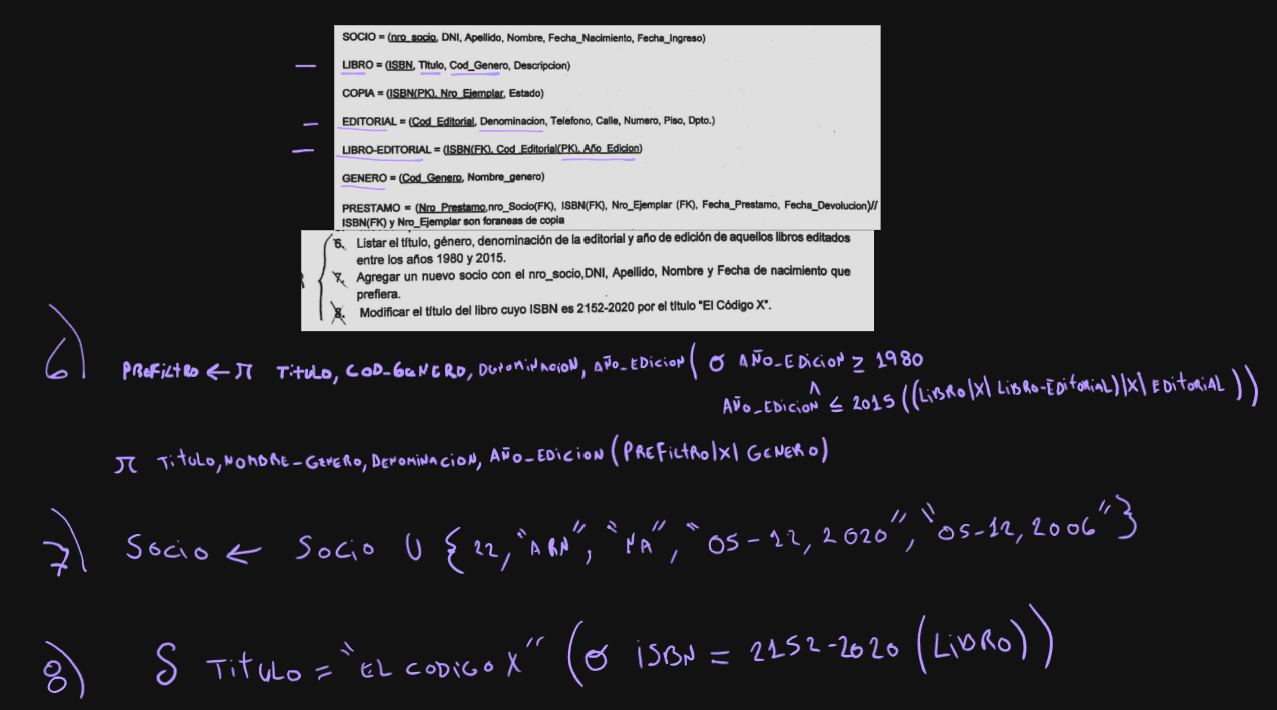 SOCIO = (nro_socio, DNI, Apellido, Nombre, Fecha_Nacimiento, Fecha_Ingreso)
LIBRO = (ISBN, Título, Cod_Genero, Descripcion)
COPIA = (ISBN(PK), Nro_Ejemplar, Estado)
EDITORIAL = (Cod_Editorial, Denominacion, Telefono, Calle, Numero, Piso, Dpto.)
LIBRO-EDITORIAL = (ISBN(FK), Cod_Editorial(PK), Año_Edicion)
GENERO = (Cod_Genero, Nombre_genero)
PRESTAMO = (Nro_Prestamo,nro_Socio(FK), ISBN(FK), Nro_Ejemplar (FK), Fecha_Prestamo, Fecha_Devolucion)//
ISBN(FK) y Nro_Ejemplar son foraneas de copia
6. Listar el título, género, denominación de la editorial y año de edición de aquellos libros editados
entre los años 1980 y 2015.
7. Agregar un nuevo socio con el nro_socio,DNI, Apellido, Nombre y Fecha de nacimiento que
prefiera.
8. Modificar el título del libro cuyo ISBN es 2152-2020 por el título "El Código X".
6) PREFILTRO ← π TITULO, COD_GENERO, DENOMINACION, AÑO_EDICION ( σ AÑO_EDICION ≥ 1980
∧
AÑO_EDICION ≤ 2015 ((LIBRO |X| LIBRO-EDITORIAL) |X| EDITORIAL ))
π TITULO, NOMBRE-GENERO, DENOMINACION, AÑO-EDICION (PREFILTRO |X| GENERO)
7) SOCIO ← SOCIO U { 22, "ARN", "NA", "05-12, 2020", "05-12, 2006" }
8) δ TITULO = "EL CODIGO X" (σ ISBN = 2152-2020 (LIBRO))